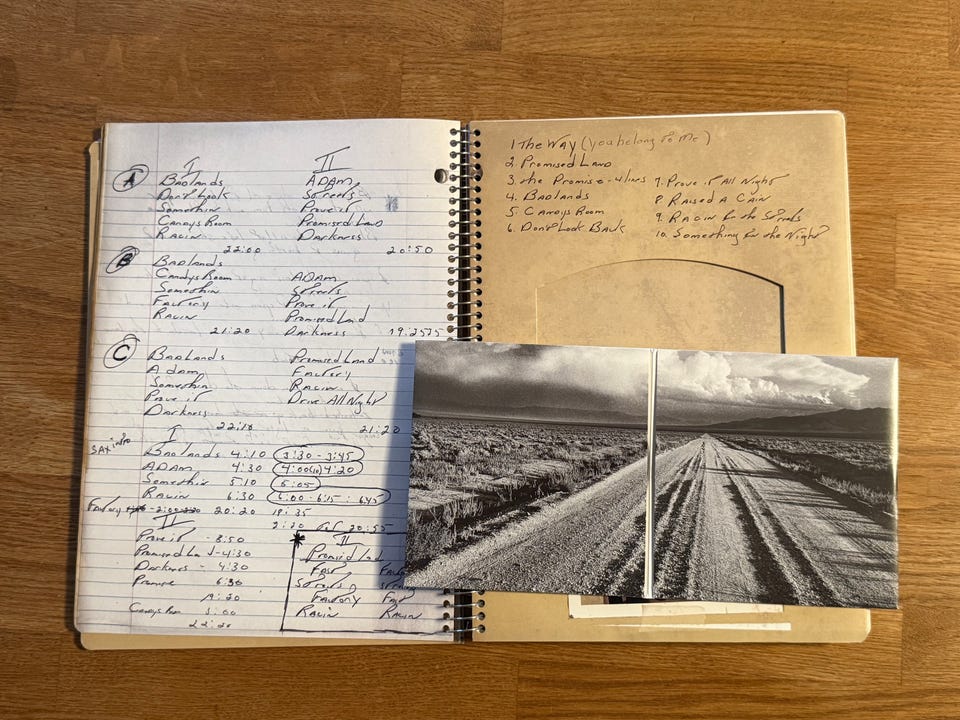 I II
A Badlands ADAM
Don't Look Streets
Somethin Prove it
Candys Room Promised Land
Racin Darkness
22:00 20:50
B Badlands
Candys Room ADAM
Somethin Streets
Factory Prove it
Racin Promised Land
21:20 Darkness
C Badlands Promised Land
Adam Factory
Somethin Racin
Prove it Drive All Night
Darkness
22:10 21:20
I
SAX intro
Badlands 4:10 3:30 - 3:45
ADAM 4:30 4:20
Somethin 5:10 5:05
Racin 6:30 6:00 - 6:15 : 645
Factory 20:20 19:35
II 20:55
Prove it - 3:50
Promised Land - 4:30
Darkness - 4:30
Promise 6:30
19:20
Candys Room 3:00
22:20
* II
Promised Lad
Fast
Streets
Factory Fast
Racin Racin
1 The Way (you belong to Me)
2. Promised Land
3. the Promise - 4 lines
4. Badlands
5. Candys Room
6. Don't Look Back
7. Prove it All Night
8. Raised A Cain
9. Racin in the Streets
10. Something for the Night